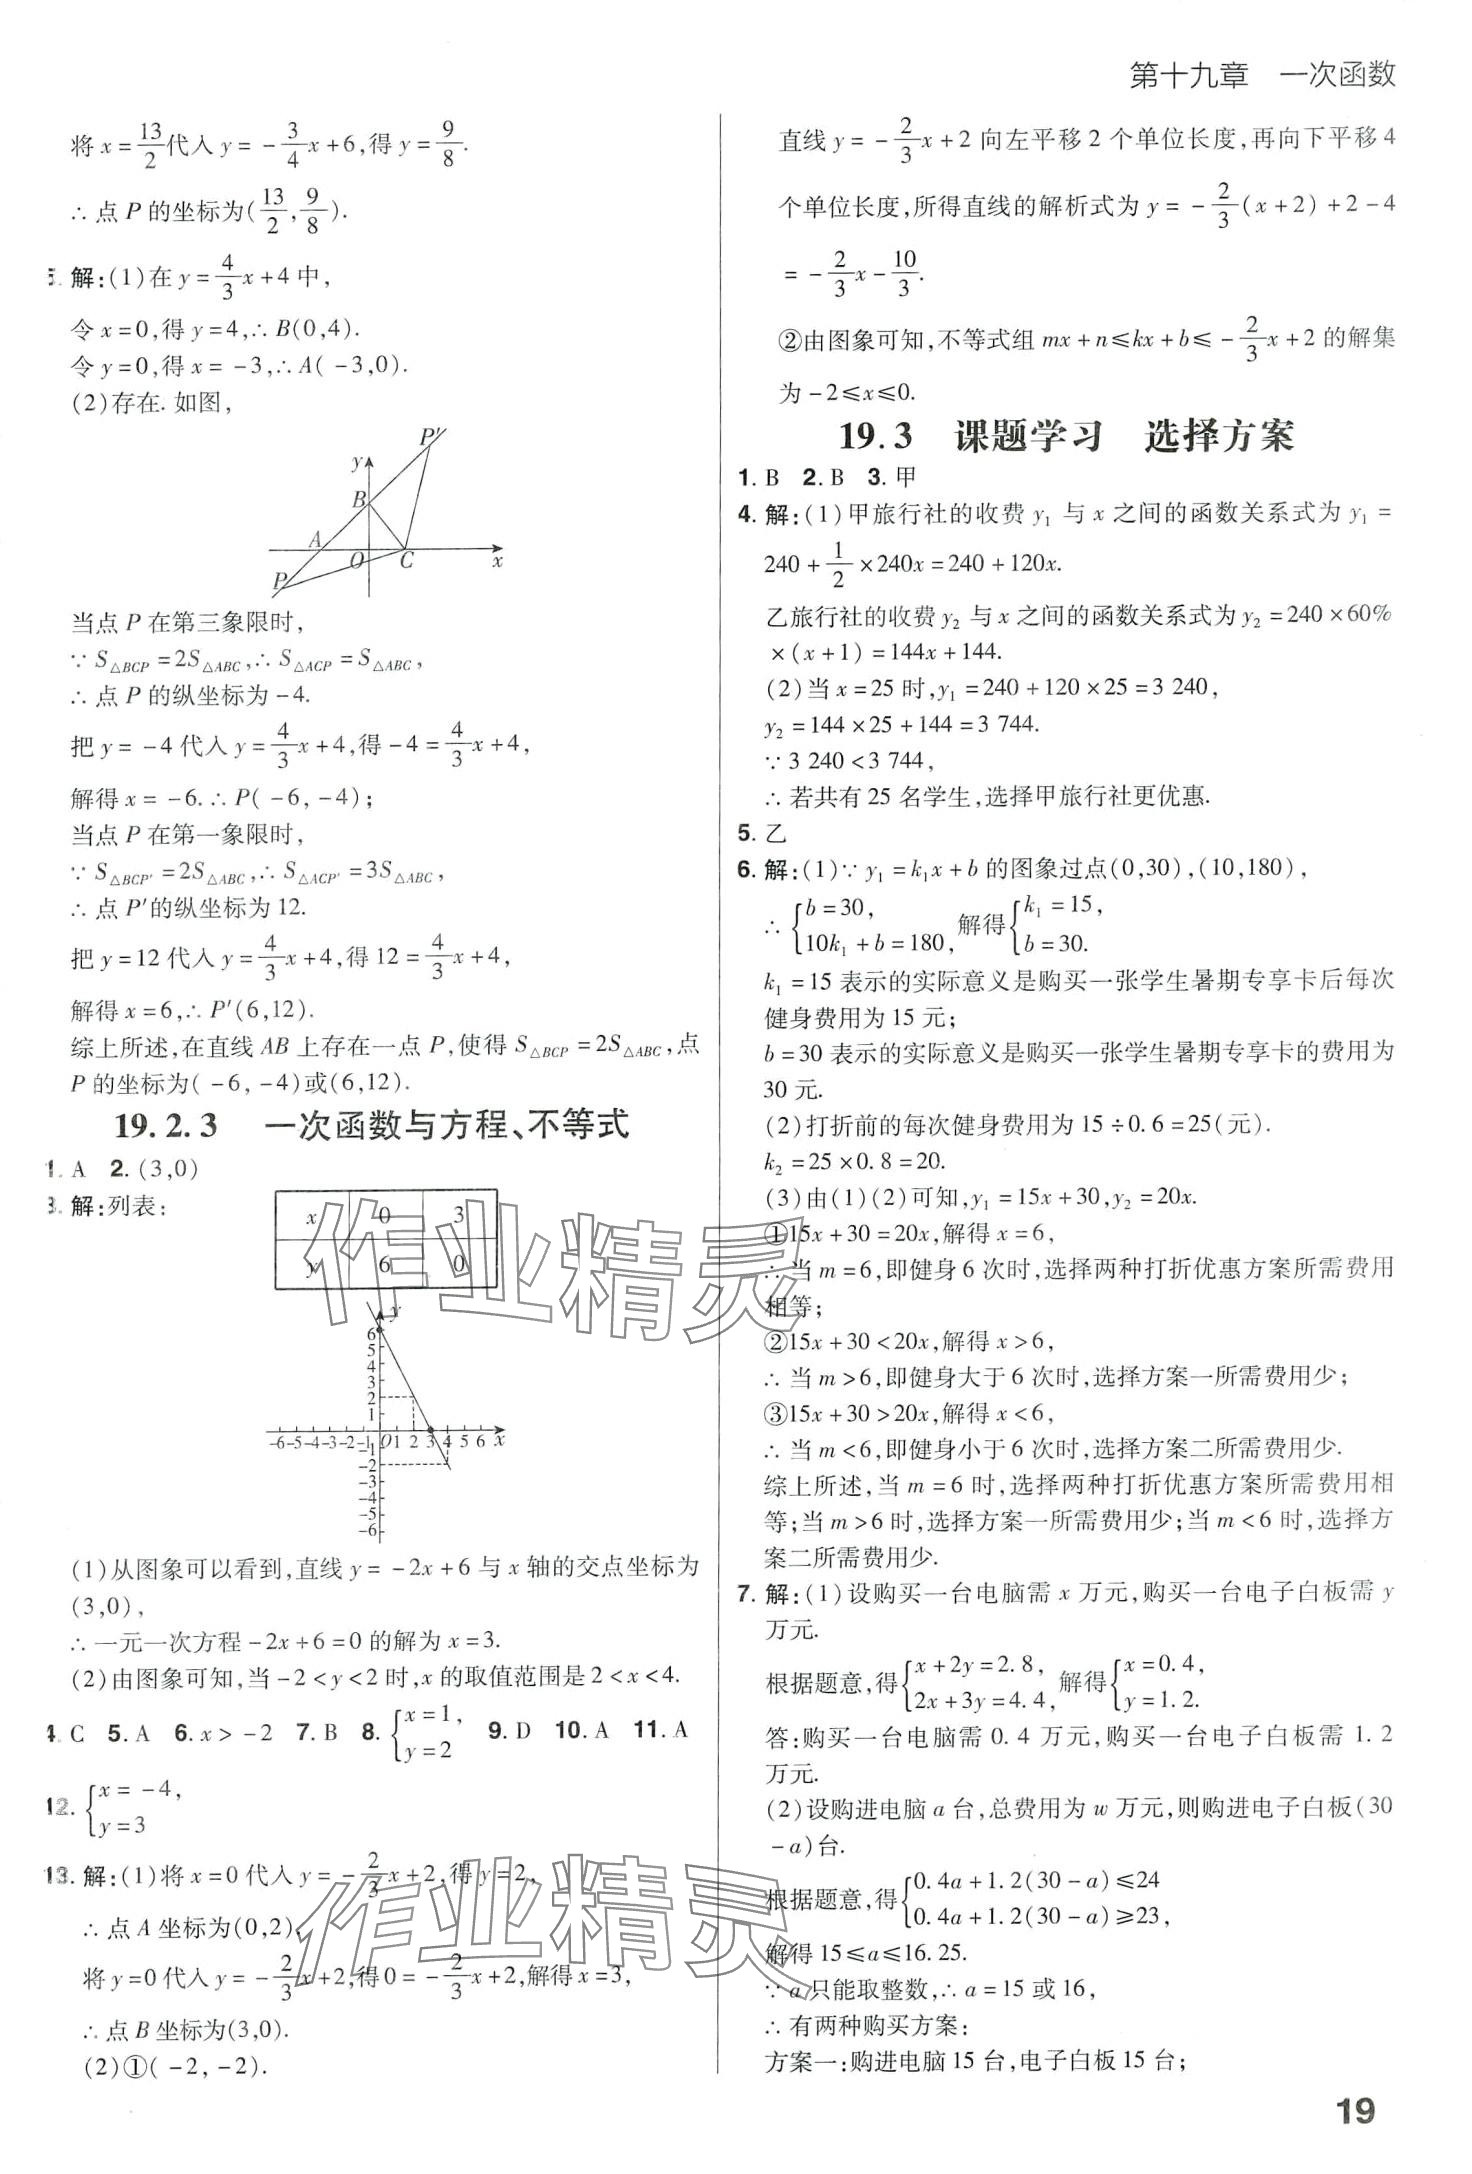 第十九章 一次函数
将 x=13/2代入 y=-3/4x+6,得 y=9/8.
∴点 P 的坐标为(13/2,9/8).
解:(1)在 y=4/3x+4 中,
令 x=0,得 y=4,∴B(0,4).
令 y=0,得 x=-3,∴A(-3,0).
(2)存在. 如图,
P′
y
B
A O C x
P
当点 P 在第三象限时,
∵S△BCP=2S△ABC,∴S△ACP=S△ABC,
∴点 P 的纵坐标为-4.
把 y=-4 代入 y=4/3x+4,得-4=4/3x+4,
解得 x=-6.∴P(-6,-4);
当点 P 在第一象限时,
∵S△BCP′=2S△ABC,∴S△ACP′=3S△ABC,
∴点 P′的纵坐标为 12.
把 y=12 代入 y=4/3x+4,得 12=4/3x+4,
解得 x=6,∴P′(6,12).
综上所述,在直线 AB 上存在一点 P,使得 S△BCP=2S△ABC,点
P 的坐标为(-6,-4)或(6,12).
19.2.3 一次函数与方程、不等式
1. A 2. (3,0)
3. 解:列表:
x 0 3
y 6 0
y
6
5
4
3
2
1
-6-5-4-3-2-1 O 1 2 3 4 5 6 x
-1
-2
-3
-4
-5
-6
(1)从图象可以看到,直线 y=-2x+6 与 x 轴的交点坐标为
(3,0),
∴一元一次方程-2x+6=0 的解为 x=3.
(2)由图象可知,当-2<y<2 时,x 的取值范围是 2<x<4.
4. C 5. A 6. x>-2 7. B 8. {x=1, y=2 9. D 10. A 11. A
12. {x=-4, y=3
13. 解:(1)将 x=0 代入 y=-2/3x+2,得 y=2,
∴点 A 坐标为(0,2),
将 y=0 代入 y=-2/3x+2,得0=-2/3x+2,解得 x=3,
∴点 B 坐标为(3,0).
(2)①(-2,-2).
直线 y=-2/3x+2 向左平移 2 个单位长度,再向下平移 4
个单位长度,所得直线的解析式为 y=-2/3(x+2)+2-4
=-2/3x-10/3.
②由图象可知,不等式组 mx+n≤kx+b≤-2/3x+2 的解集
为-2≤x≤0.
19.3 课题学习 选择方案
1. B 2. B 3. 甲
4. 解:(1)甲旅行社的收费 y₁ 与 x 之间的函数关系式为 y₁=
240+1/2×240x=240+120x.
乙旅行社的收费 y₂ 与 x 之间的函数关系式为 y₂=240×60%
×(x+1)=144x+144.
(2)当 x=25 时,y₁=240+120×25=3 240,
y₂=144×25+144=3 744.
∵3 240<3 744,
∴若共有 25 名学生,选择甲旅行社更优惠.
5. 乙
6. 解:(1)∵y₁=k₁x+b 的图象过点(0,30),(10,180),
∴{b=30, 10k₁+b=180, 解得{k₁=15, b=30.
k₁=15 表示的实际意义是购买一张学生暑期专享卡后每次
健身费用为 15 元;
b=30 表示的实际意义是购买一张学生暑期专享卡的费用为
30 元.
(2)打折前的每次健身费用为 15÷0.6=25(元).
k₂=25×0.8=20.
(3)由(1)(2)可知,y₁=15x+30,y₂=20x.
①15x+30=20x,解得 x=6,
∴当 m=6,即健身 6 次时,选择两种打折优惠方案所需费用
相等;
②15x+30<20x,解得 x>6,
∴当 m>6,即健身大于 6 次时,选择方案一所需费用少;
③15x+30>20x,解得 x<6,
∴当 m<6,即健身小于 6 次时,选择方案二所需费用少.
综上所述,当 m=6 时,选择两种打折优惠方案所需费用相
等;当 m>6 时,选择方案一所需费用少;当 m<6 时,选择方
案二所需费用少.
7. 解:(1)设购买一台电脑需 x 万元,购买一台电子白板需 y
万元.
根据题意,得{x+2y=2.8, 2x+3y=4.4, 解得{x=0.4, y=1.2.
答:购买一台电脑需 0.4 万元,购买一台电子白板需 1.2
万元.
(2)设购进电脑 a 台,总费用为 w 万元,则购进电子白板(30
-a)台.
根据题意,得{0.4a+1.2(30-a)≤24 0.4a+1.2(30-a)≥23,
解得 15≤a≤16.25.
∵a 只能取整数,∴a=15 或 16,
∴有两种购买方案:
方案一:购进电脑 15 台,电子白板 15 台;
作业精灵
作业精灵
19